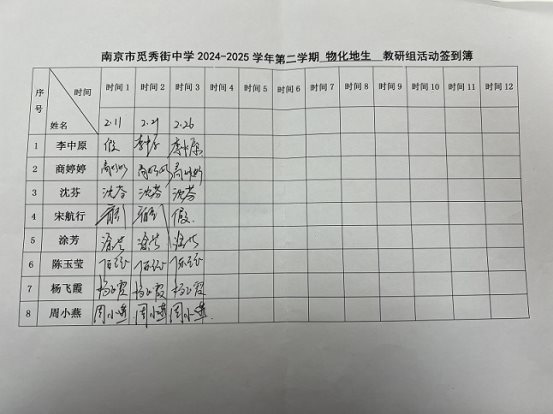 南京市觅秀街中学 2024-2025 学年第二学期 物化地生 教研组活动签到簿
序号 时间 姓名 时间 1 时间 2 时间 3 时间 4 时间 5 时间 6 时间 7 时间 8 时间 9 时间 10 时间 11 时间 12
2.11 2.26
1 李中原 假 李中原 李中原
2 商婷婷 商婷婷 商婷婷 商婷婷
3 沈芬 沈芬 沈芬 沈芬
4 宋航行 假
5 涂芳
6 陈玉莹
7 杨飞霞 杨飞霞 杨飞霞 杨飞霞
8 周小燕 周小燕 周小燕 周小燕